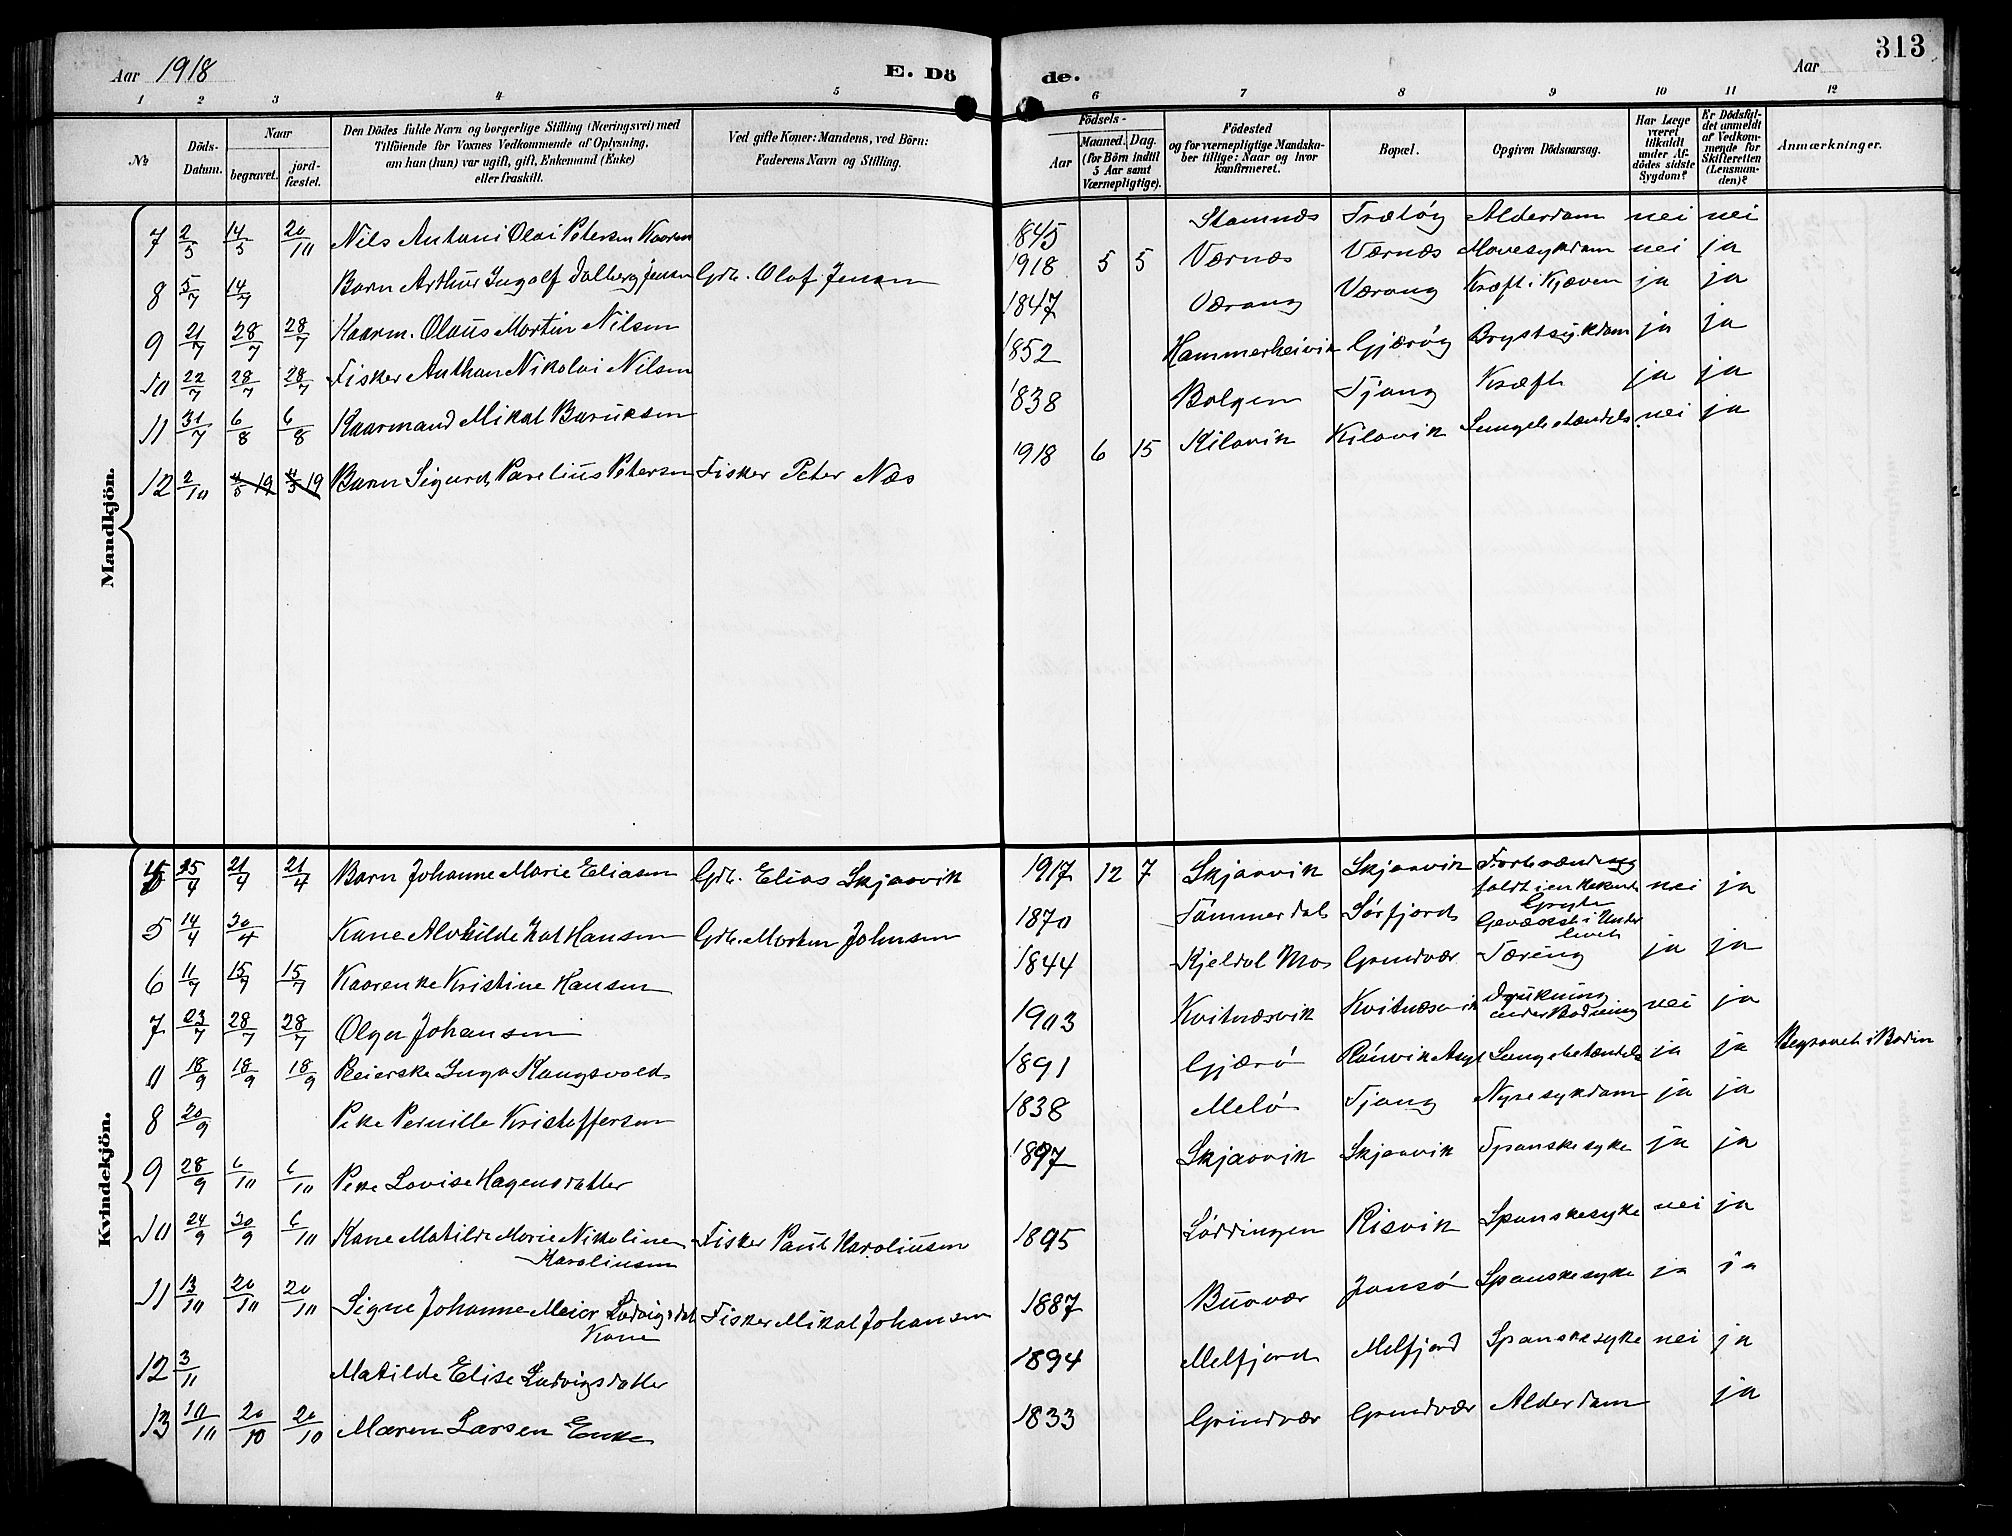 Aar 1918 E. Dö de. Aar 313
1 2 3 4 5 6 7 8 9 10 11 12
No Döds-Datum. Naar begravet. jordfæstet. Den Dödes fulde Navn og borgerlige Stilling (Næringsvei) med Tilföiende for Voxnes Vedkommende af Oplysning, om han (hun) var ugift, gift, Enkemand (Enke) eller fraskilt. Ved gifte Koner: Mandens, ved Börn: Faderens Navn og Stilling. Födsels- Aar Maaned. Dag. (for Börn indtil 5 Aar samt Værnepligtige). Födested og for værnepligtige Mandskaber tillige: Naar og hvor konfirmeret. Bopæl. Opgiven Dödsaarsag. Har Læge været tilkaldt under Afdödes sidste Sygdom? Er Dödsfaldet anmeldt af Vedkommende for Skifteretten (Lensmanden)? Anmærkninger.
Mandkjön.
7 2/5 14/5 20/10 Nils Antoni Olai Petersen Kaarm 1845 Stamnæs Trætöy Alderdom nei nei
8 5/7 14/7 Barn Arthur Ingolf Dalberg Jensen Gdb. Olaf Jensen 1918 5 5 Værnæs Værnæs Mavesykdom nei ja
9 21/7 28/7 28/7 Kaarm. Olaus Martin Nilsen 1847 Værang Værang Kræft i Kjæven ja ja
10 22/7 28/7 28/7 Fisker Anthon Nikolai Nilsen 1852 Hammerheivik Gjæröy Brystsykdom ja ja
11 31/7 6/8 6/8 Kaarmand Mikal Baruksen 1838 Bolgen Tjong Kræft ja ja
12 2/10 4/5 19 4/5 19 Barn Sigurd Parelius Petersen Fisker Peter Næs 1918 6 15 Kilavik Kilavik Lungebetændels nei ja
Kvindekjön.
25/4 21/4 21/4 Barn Johanne Marie Eliasen Gdb. Elias Skjaavik 1917 12 7 Skjaavik Skjaavik Forbrænding faldt i en kokende Gryte nei ja
5 14/4 30/4 Kone Alvhilde Hansen Gdb. Morten Johnsen 1870 Tömmerdal Sörfjord Gevæxst i Underlivet ja ja
6 11/7 15/7 15/7 Kaarenke Kristine Hansen 1844 Kjeldal Mos Grindvær Tæring
7 23/7 28/7 28/7 Olga Johansen 1903 Kvitnæsvik Kvitnæsvik Drukning under Badning nei ja
11 18/9 18/9 18/9 Peierske Inga Kongsvold 1891 Gjærö Rönvik Asyl Lungebetændels ja ja Begravet i Bodin
8 20/9 Pike Pernille Kristoffersen 1838 Melö Tjong Nyresykdom ja ja
9 28/9 6/10 6/10 Pike Lovise Hagensdatter 1897 Skjaavik Skjaavik Spanskesyke ja ja
10 24/9 30/9 6/10 Kone Matilde Marie Nikoline Karoliusen Fisker Paul Karoliusen 1895 Lödingen Risvik Spanskesyke nei ja
11 13/10 20/10 20/10 Signe Johanne Meier Ludvigsdat Kone Fisker Mikal Johansen 1887 Buavær Jonsö Spanskesyke ja ja
12 3/11 Matilde Elise Ludvigsdatter 1894 Melfjord Melfjord Spanskesyke nei ja
13 10/10 20/10 20/10 Maren Larsen Enke 1833 Grindvær Grindvær Alderdom ja